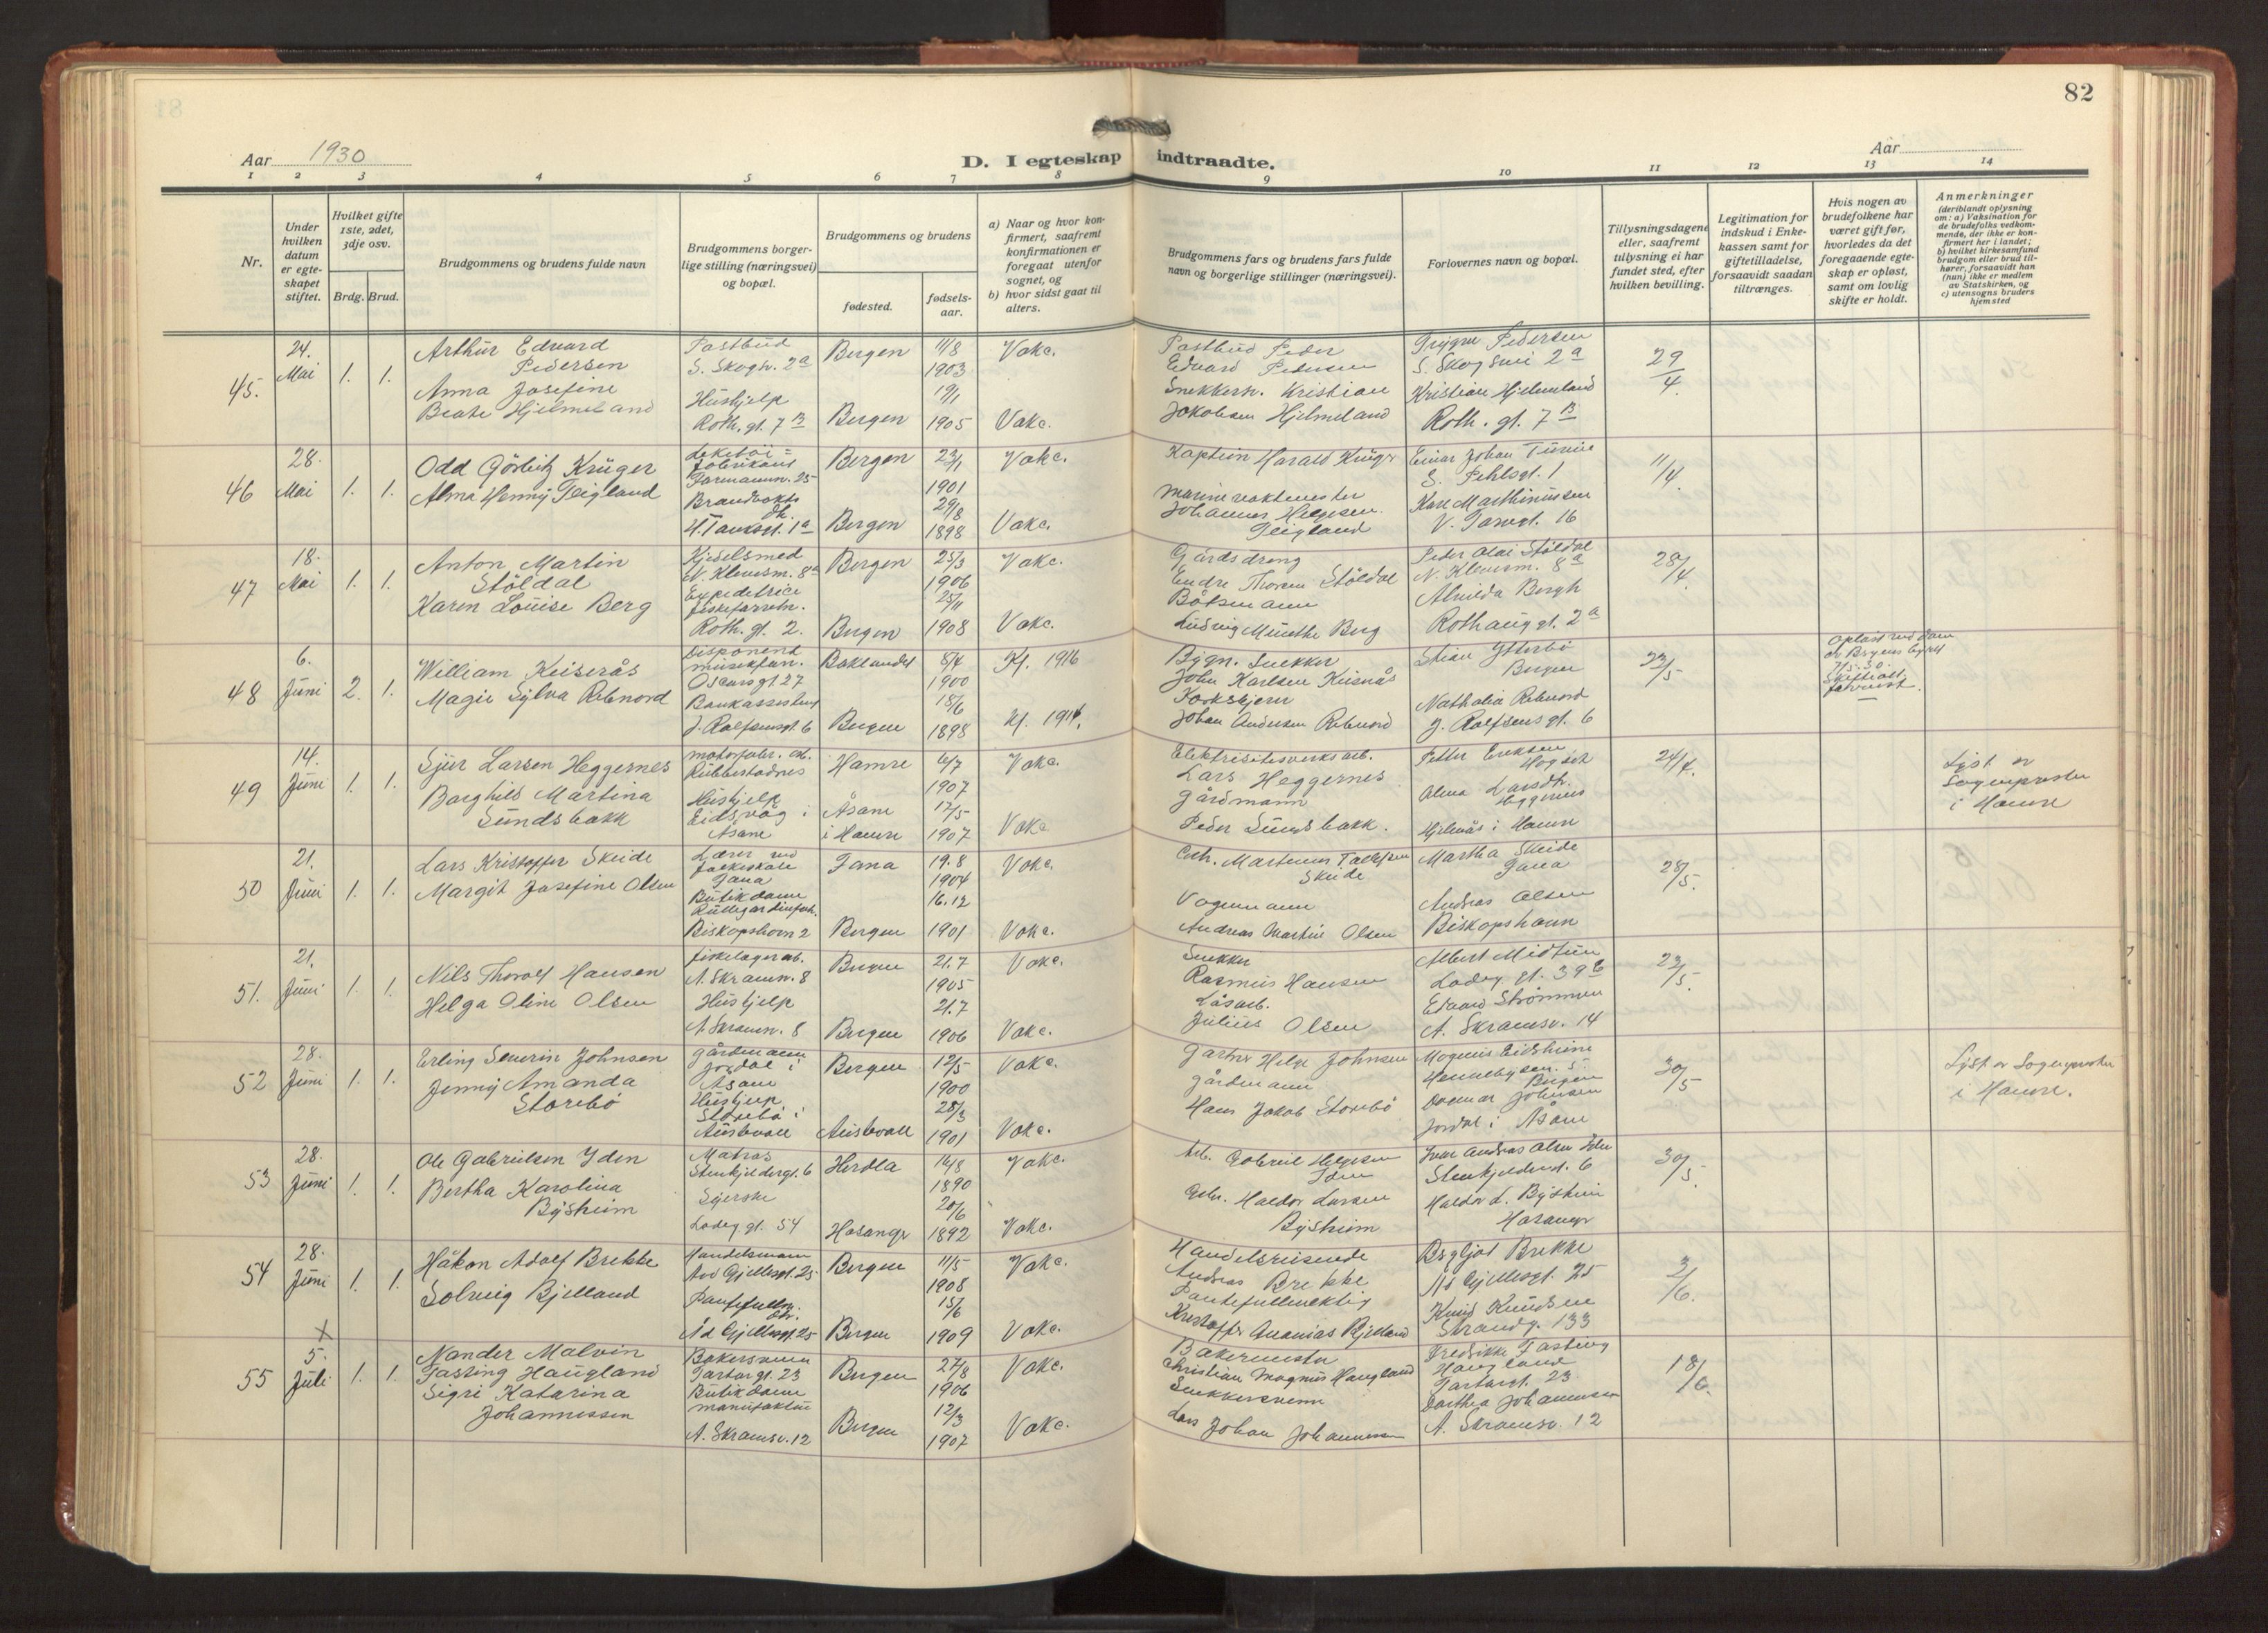 82
Aar 1930
D. I egteskap indtraadte.
Aar
1 2 3 4 5 6 7 8 9 10 11 12 13 14
Nr.
Under hvilken datum er egteskapet stiftet.
Hvilket gifte 1ste, 2det, 3dje osv.
Brdg. Brud.
Brudgommens og brudens fulde navn
Brudgommens borgerlige stilling (næringsvei) og bopæl.
Brudgommens og brudens
fødested.
fødselsaar.
a) Naar og hvor konfirmert, saafremt konfirmationen er foregaat utenfor sognet, og
b) hvor sidst gaat til alters.
Brudgommens fars og brudens fars fulde navn og borgerlige stillinger (næringsvei).
Forlovernes navn og bopæl.
Tillysningsdagene eller, saafremt tillysning ei har fundet sted, efter hvilken bevilling.
Legitimation for indskud i Enkekassen samt for giftetilladelse, forsaavidt saadan tiltrænges.
Hvis nogen av brudefolkene har været gift før, hvorledes da det foregaaende egteskap er opløst, samt om lovlig skifte er holdt.
Anmerkninger
(deriblandt oplysning om: a) Vaksination for de brudefolks vedkommende, der ikke er konfirmert her i landet; b) hvilket kirkesamfund brudgom eller brud tilhører, forsaavidt han (hun) ikke er medlem av Statskirken, og c) utensogns bruders hjemsted
45. 24. Mai 1. 1.
Arthur Edvard Pedersen
Anna Josefine Beate Hjelmeland
Postbud
S. Skogv. 2a
Bergen 11/8 1903 Vakc.
Hushjelp
Roth. gt. 7 B
Bergen 19/1 1905 Vakc.
Postbud Peder
Edvard Pedersen
Snekkersv. Kristian
Jakobsen Hjelmeland
Trygve Pedersen
S. Skogvei 2a
Kristian Hjelmeland
Roth. gt. 7 B
29/4.
46 28. Mai 1. 1.
Odd Görbitz Krüger
Alma Henny Teigland
Leketöi=
fabrikant
Formannsv. 25
Bergen 23/1 1901 Vakc.
Brandvakts
dt.
H. Tanksgt. 1a
Bergen 29/8 1898 Vakc.
Kaptein Harald Krüger
Marinevaktmester
Johannes Helgesen
Teigland
Einar Johan
S. Pihlsgt. 1
Kåre Marthinussen
V. Torvgt. 16
11/4.
47 18. Mai 1. 1.
Anton Martin
Stöldal
Karen Louise Berg
Kjedelsmed
N. Klevesm. 8a
Bergen 25/3 1906 Vakc.
Expeditrice
fiskeforretn.
Roth. gt. 2.
Bergen 25/11 1908 Vakc.
Gårdsdreng
Endre Thorsen Stöldal
Båtsmann
Ludvig Munthe Berg
Peder Olai Stöldal
N. Klevesm. 8a
Almida Bergh
Rothaug gt. 2a
28/4.
48 6. Juni 2. 1.
William Keiserås
Magie Sylva Rebnord
Disponent
Oscarsgt 27
Baklandet 8/4 1900 Kf. 1916
Bankassistent
J. Rolfsensgt. 6
Bergen 18/6 1898 Kf. 1914.
Bygn. Snekker
John Karlsen
Johan Andersen Rebnord
Stian Ytterbö
Bergen
Nathalia Rebnord
J. Rolfsens gt. 6
23/5
Opløst ved dom
av Bergens byrett
7/5.30.
49 14. Juni 1. 1.
Sjur Larsen Heggernes
Borghild Martina
Sundsbakk
motorfabr. arb.
Rubbestadnes
Hamre 6/7 1907 Vakc.
Hushjelp
Eidsvåg i
Åsane
Åsane
i Hamre 17/5 1907 Vakc
Elektrisitetsverksarb.
Lars Heggernes
Gårdmann
Peder Sundsbakk.
Petter Eriksen
Alma Larsdtr.
Heggernes
Hjelmås i Hamre
24/4.
Lyst av
Sognepresten
i Hamre
50 21. Juni 1. 1.
Lars Kristoffer Skeide
Margit Josefine Olsen
Lærer ved
folkeskole
Fana
Fana 19.8 1904 Vakc.
Butikdame
Rullegardinforr.
Biskopshavn 2
Bergen 16.12 1901 Vakc.
Skeide
Vognmann
Andreas Martin Olsen
Martha Skeide
Fana
Andreas Olsen
Biskopshavn
28/5.
51. 21. Juni 1. 1.
Nils Thoralf Hansen
Helga Oline Olsen
fiskelagerarb.
A. Skramsv. 8
Bergen 21.7 1905 Vakc.
Hushjelp
A. Skramsv. 8
Bergen 21.7 1906 Vakc.
Snekker
Rasmus Hansen
Julius Olsen
Albert Midtun
Ladeg. gt. 39
Edvard Strömmen
A. Skramsv. 14
23/5.
52 28. Juni 1. 1.
Erling Severin Johnsen
Jenny Amanda
Storebö
Gårdmann
Jordal i
Åsane
Bergen 12/5 1900 Vakc.
Hushjelp
Storebö i
Austevoll
Austevoll 28/3 1901 Vakc.
Gartner Helge Johnsen
Gårdmann
Hans Jakob Storebö
Magnus Eidsheim
Bergen
Johnsen
Jordal i Åsane
30/5
Lyst av Sognepresten
i Hamre.
53 28. Juni 1. 1.
Ole Gabrielsen Yden
Bertha Karolina
Bysheim
Matros
Stenkjeldergt. 6
Herdla 16/8 1890 Vakc.
Syerske
Ladeg gt. 54
Hosanger 20/6 1892 Vakc.
Arb. Gabriel Helgesen
Yden
Gbr. Haldor Larsen
Bysheim
Ivar Andreas Olsen Yden
Stenkjeldergt. 6
Haldor L. Bysheim
Hosanger
30/5.
54 28. Juni 1. 1.
Håkon Adolf Brekke
Solveig Bjelland
Handelsmann
Ad Gjellesgt. 25
Bergen 11/5 1908 Vakc.
Pantefullm.
dtr.
Ad Gjellesgt. 25
Bergen 15/6 1909 Vakc.
Handelsreisende
Andreas Brekke
Pantefullmektig
Kristoffer Ananias Bjelland
Bergljot Brekke
Ad Gjellesgt. 25
Knud Knudsen
Strandg. 133
3/6.
X
55 5. Juli 1. 1.
Nander Malvin
Fasting Haugland
Sigri Katarina
Johannessen
Bakersvenn
Tartargt. 23
Bergen 27/8 1906 Vakc.
Butikdame
manufaktur
A. Skramsv. 12
Bergen 12/3 1907 Vakc.
Bakermester
Christian Magnus Haugland
Snekkersvenn
Lars Johan Johannessen
Fredrikke Fasting
Haugland
Tartargt. 23
Dorthea Johannessen
A. Skramsv. 12
18/6.